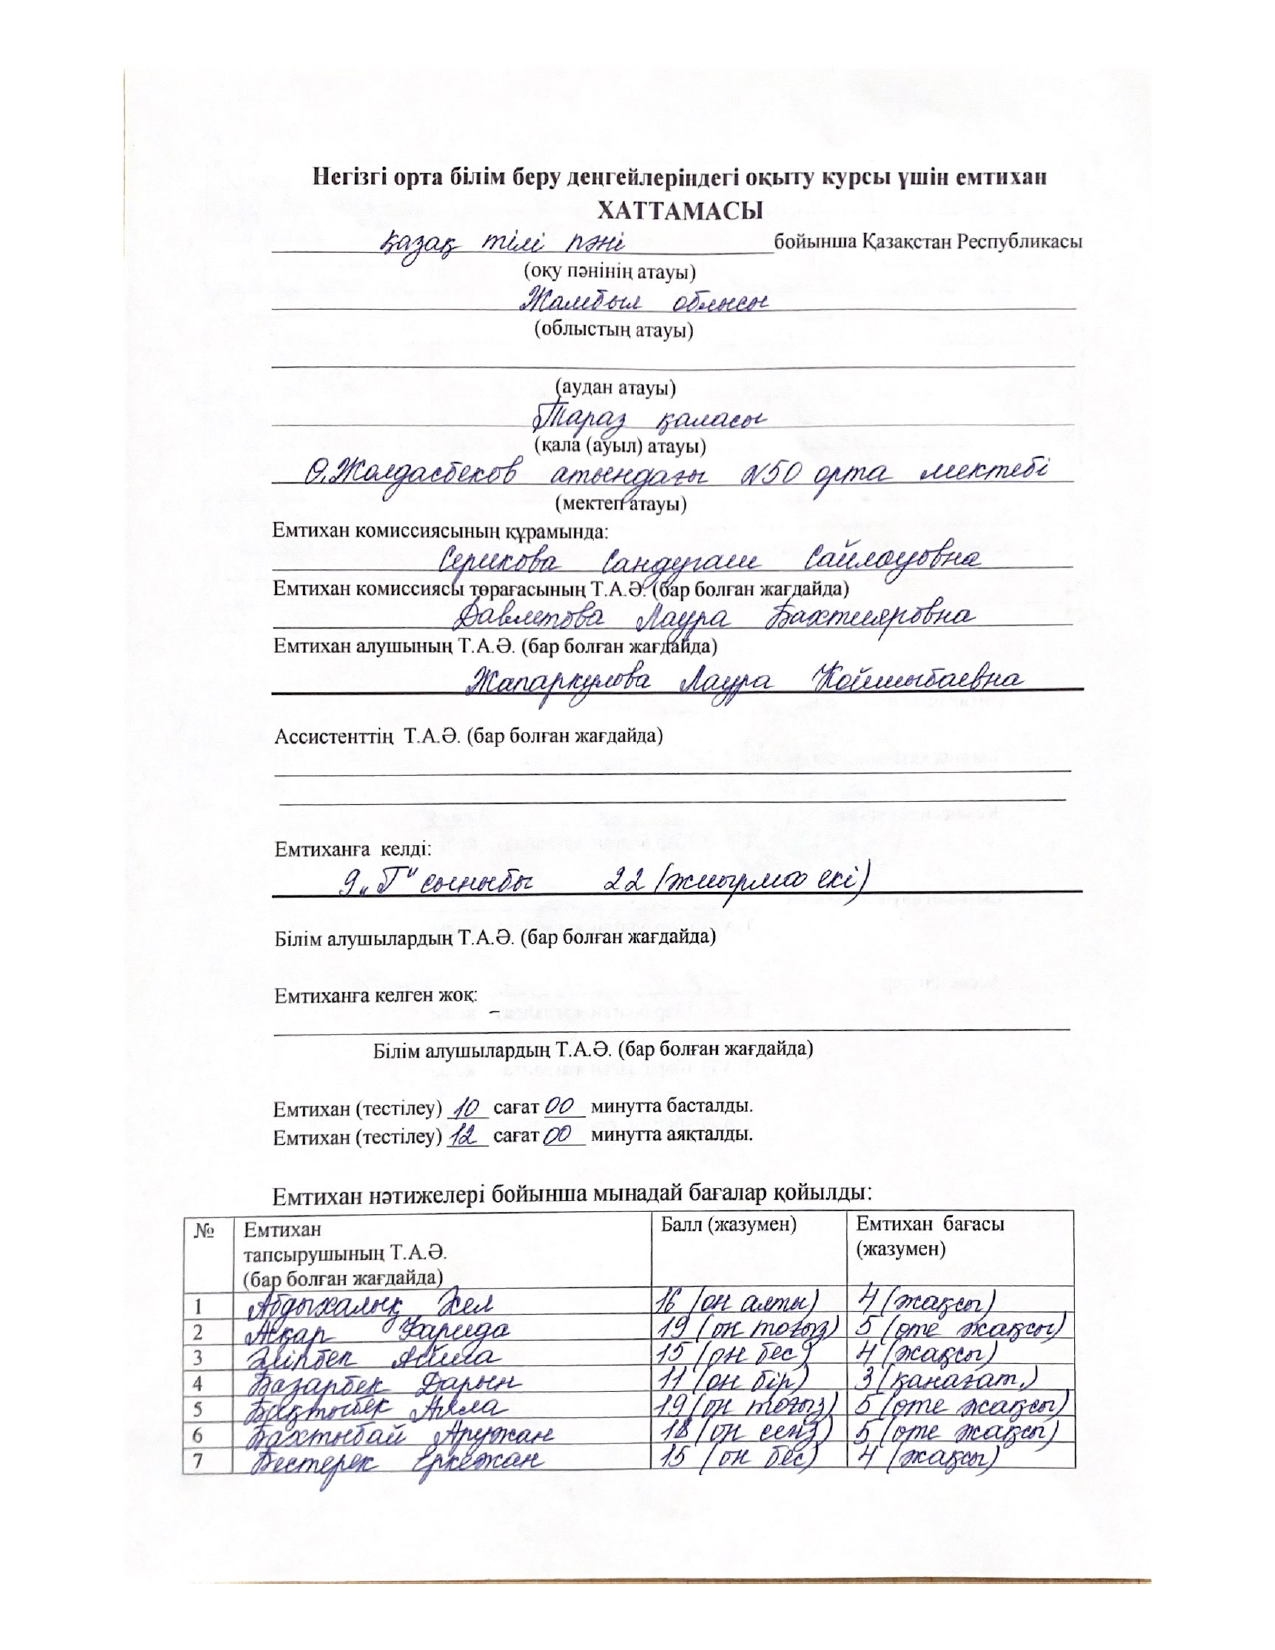 Негізгі орта білім беру деңгейлеріндегі оқыту курсы үшін емтихан
ХАТТАМАСЫ
қазақ тілі пәні бойынша Қазақстан Республикасы
(оқу пәнінің атауы)
Жамбыл облысы
(облыстың атауы)
(аудан атауы)
Тараз қаласы
(қала (ауыл) атауы)
Ө.Жолдасбеков атындағы №50 орта мектебі
(мектеп атауы)
Емтихан комиссиясының құрамында:
Серикова Сандугаш Сайлауовна
Емтихан комиссиясы төрағасының Т.А.Ә. (бар болған жағдайда)
Давлетова Лаура Бахтияровна
Емтихан алушының Т.А.Ә. (бар болған жағдайда)
Жапаркулова Лаура Койшыбаевна
Ассистенттің Т.А.Ә. (бар болған жағдайда)
Емтиханға келді:
9 „Г" сыныбы 22 (жиырма екі)
Білім алушылардың Т.А.Ә. (бар болған жағдайда)
Емтиханға келген жоқ: –
Білім алушылардың Т.А.Ә. (бар болған жағдайда)
Емтихан (тестілеу) 10 сағат 00 минутта басталды.
Емтихан (тестілеу) 12 сағат 00 минутта аяқталды.
Емтихан нәтижелері бойынша мынадай бағалар қойылды:
№ Емтихан тапсырушының Т.А.Ә. (бар болған жағдайда) Балл (жазумен) Емтихан бағасы (жазумен)
1 Абдыхалық 16 (он алты) 4 (жақсы)
2 Асқар Фарида 19 (он тоғыз) 5 (өте жақсы)
3 Әліпбек 15 (он бес) 4 (жақсы)
4 Базарбек Дарын 11 (он бір) 3 (қанағат.)
5 Бақтыбек 19 (он тоғыз) 5 (өте жақсы)
6 Бахтыбай Аружан 18 (он сегіз) 5 (өте жақсы)
7 Бестерек Еркежан 15 (он бес) 4 (жақсы)